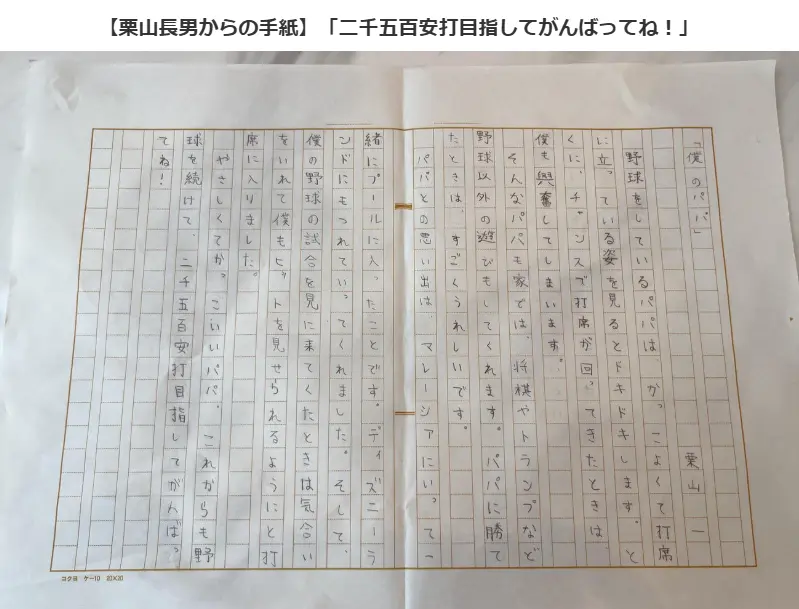 【栗山長男からの手紙】「二千五百安打目指してがんばってね！」
「僕のパパ」
栗山 一
野球をしているパパは、かっこよくて打席
に立っている姿を見るとドキドキします。と
くに、チャンスで打席が回ってきたときは
僕も興奮してしまいます。
そんなパパも家では、将棋やトランプなど
野球以外の遊びもしてくれます。パパに勝て
たときは、すごくうれしいです。
パパとの思い出は、マレーシアにいって一
緒にプールに入ったことです。ディズニーラ
ンドにもつれていってくれました。そして、
僕の野球の試合を見に来てくたときは気合い
をいれて僕もヒットを見せられるようにと打
席に入りました。
やさしくてかっこいいパパ、これからも野
球を続けて、二千五百安打目指してがんばっ
てね！
コクヨ ケ-10 20×20